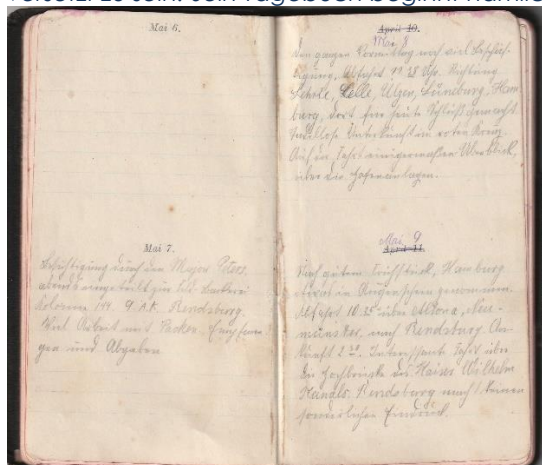 zu sein. Sein Tagebuch beginnt
Mai 6.
Mai 7.
Besichtigung durch den Major Peters,
abends eingeteilt für Bäckerei
Kolonne 144. 9 A.K. Rendsburg.
Viel Arbeit mit Packen, Empfan-
gen und Abgaben
April 10.
Mai 8
Den ganzen Vormittag noch viel Beschäf-
tigung, Abfahrt 38 Uhr. Richtung
Lehrte, Celle, Ülzen, Lüneburg, Ham
burg, dort für heute Schluß gemacht.
Tadellose Unterkunft im roten Kreuz.
Auf der Fahrt einigermaßen Überblick
über die Hafenanlagen.
Mai 9
April 11.
Nach gutem Frühstück, Hamburg
etwas in Augenschein genommen.
Abfahrt 10.35 über Altona, Neu-
münster, nach Rendsburg An
kunft 2 30. Interessante Fahrt über
die Hochbrücke des Kaiser Wilhelm
Kanals. Rendsburg macht keinen
sonderlichen Eindruck.